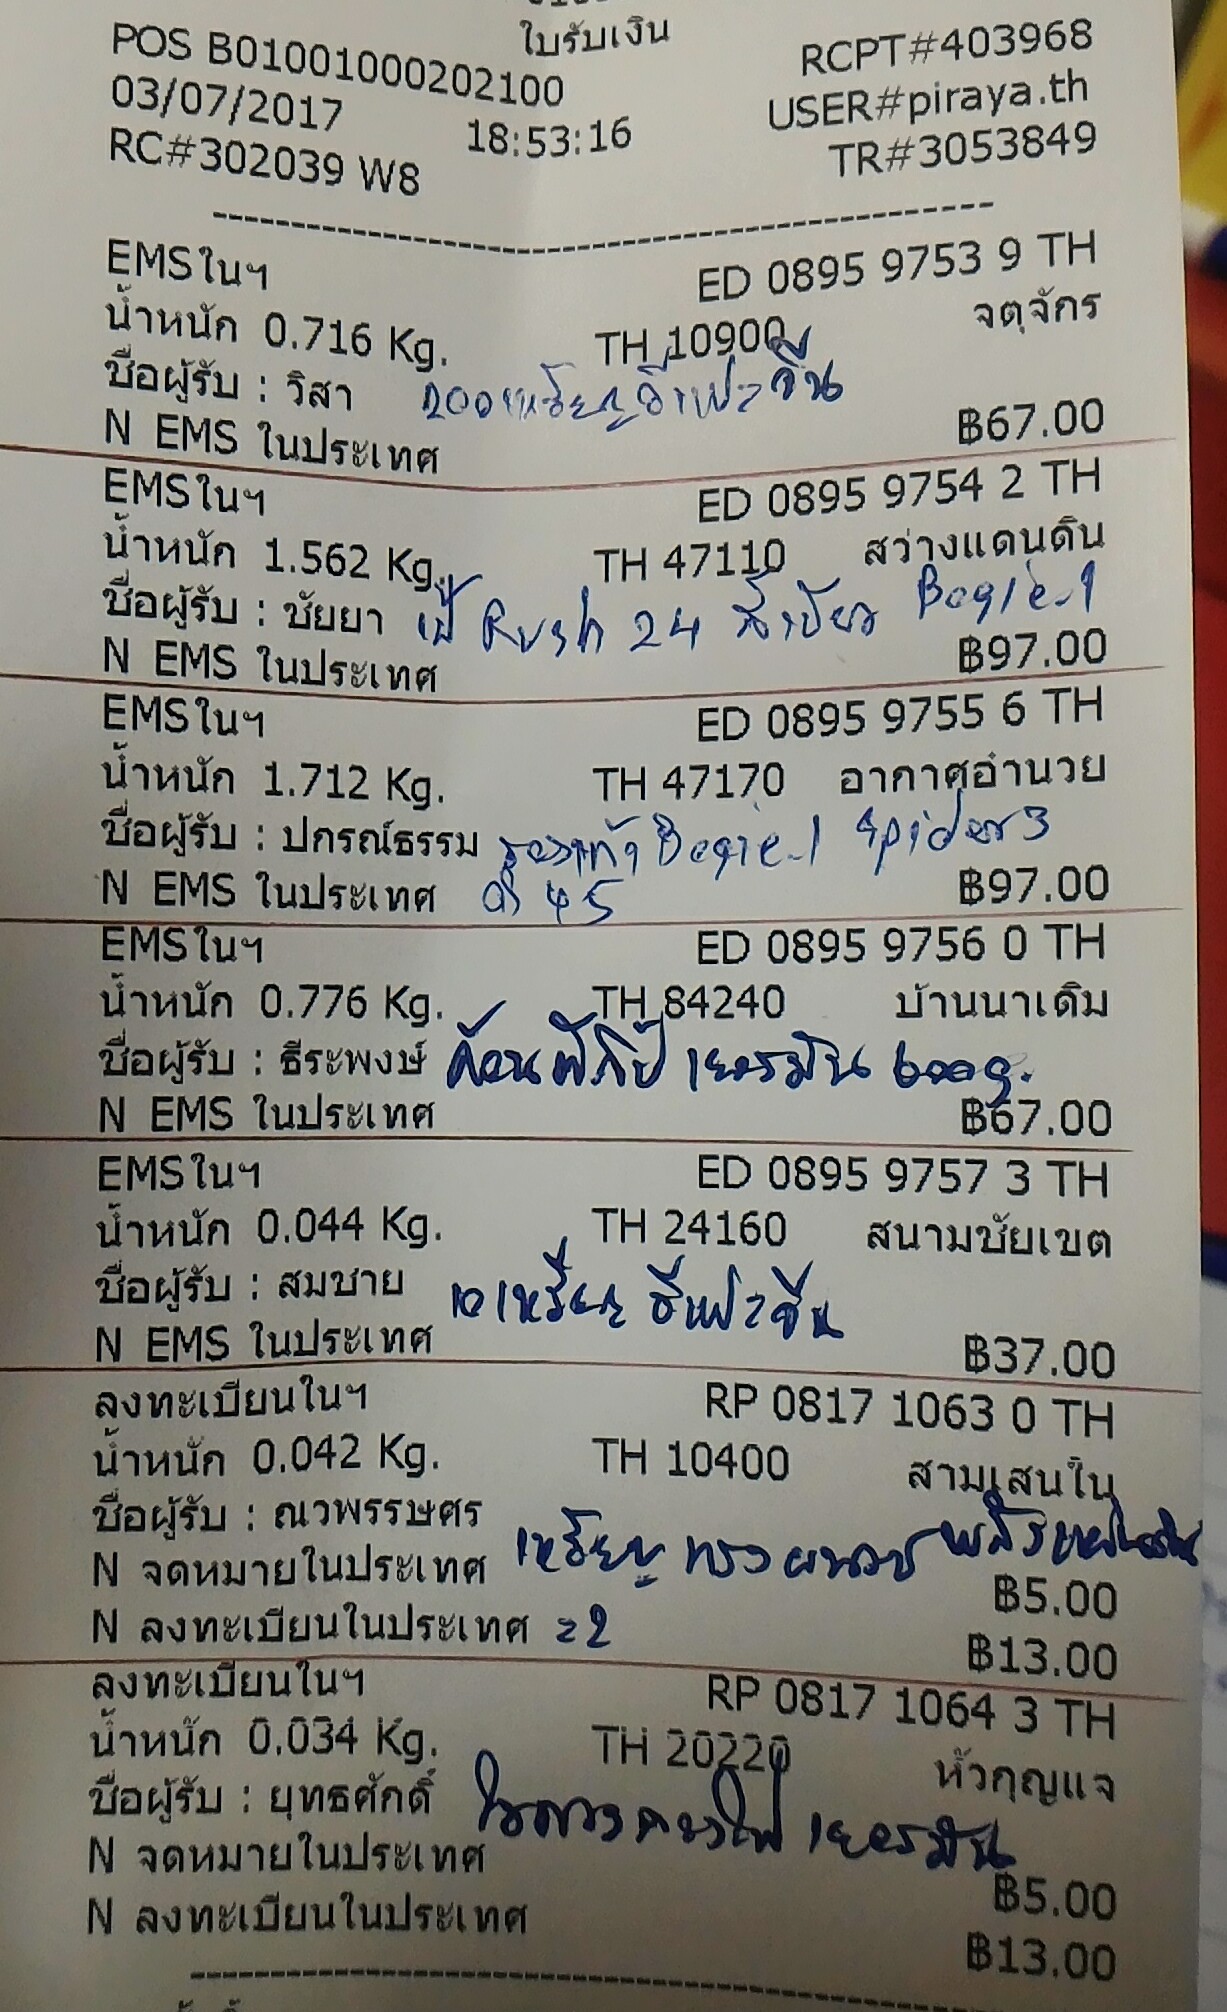 ใบรับเงิน
POS B01001000202100 RCPT#403968
03/07/2017 18:53:16 USER#piraya.th
RC#302039 W8 TR#3053849
EMSในฯ ED 0895 9753 9 TH
น้ำหนัก 0.716 Kg. TH 10900 จตุจักร
ชื่อผู้รับ : วิสา 200เหรียญอีแปะจีน
N EMS ในประเทศ ฿67.00
EMSในฯ ED 0895 9754 2 TH
น้ำหนัก 1.562 Kg. TH 47110 สว่างแดนดิน
ชื่อผู้รับ : ชัยยา เป้ Rush 24 สีเขียว Bogie1
N EMS ในประเทศ ฿97.00
EMSในฯ ED 0895 9755 6 TH
น้ำหนัก 1.712 Kg. TH 47170 อากาศอำนวย
ชื่อผู้รับ : ปกรณ์ธรรม รองเท้า Bogie1 Spider3
N EMS ในประเทศ 45 ฿97.00
EMSในฯ ED 0895 9756 0 TH
น้ำหนัก 0.776 Kg. TH 84240 บ้านนาเดิม
ชื่อผู้รับ : ธีระพงษ์ ค้อน เยอรมัน 600g.
N EMS ในประเทศ ฿67.00
EMSในฯ ED 0895 9757 3 TH
น้ำหนัก 0.044 Kg. TH 24160 สนามชัยเขต
ชื่อผู้รับ : สมชาย 10เหรียญ อีแปะจีน
N EMS ในประเทศ ฿37.00
ลงทะเบียนในฯ RP 0817 1063 0 TH
น้ำหนัก 0.042 Kg. TH 10400 สามเสนใน
ชื่อผู้รับ : ณวพรรษศร
N จดหมายในประเทศ เหรียญ ทรงผนวช พลังแผ่นดิน ฿5.00
N ลงทะเบียนในประเทศ =2 ฿13.00
ลงทะเบียนในฯ RP 0817 1064 3 TH
น้ำหนัก 0.034 Kg. TH 20220 หัวกุญแจ
ชื่อผู้รับ : ยุทธศักดิ์ เยอรมัน
N จดหมายในประเทศ ฿5.00
N ลงทะเบียนในประเทศ ฿13.00